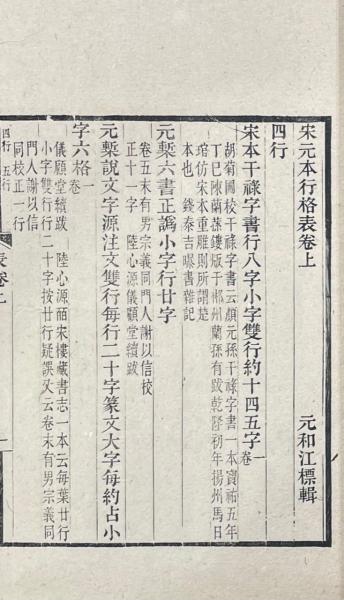 宋元本行格表卷上
元和江標輯
四行
宋本干祿字書行八字小字雙行約十四五字卷一
胡菊圃校干祿字書云顏元孫干祿字書一本寶祐五年
丁巳陳蘭孫鏤版于郴州蘭孫有跋乾隆初年揚州馬曰
琯仿宋本重雕則所謂楚
本也 錢泰吉曝書雜記
元槧六書正譌小字行廿字
卷五末有男宗義同門人謝以信校
正十一字 陸心源儀顧堂續跋
元槧說文字源注文雙行每行二十字篆文大字每約占小
字六格卷一
儀顧堂續跋 陸心源皕宋樓藏書志一本云每葉廿行
小字雙行行二十字按廿行疑誤又云卷末有男宗義同
門人謝以信
同校正一行
四行 五行
表卷上
一